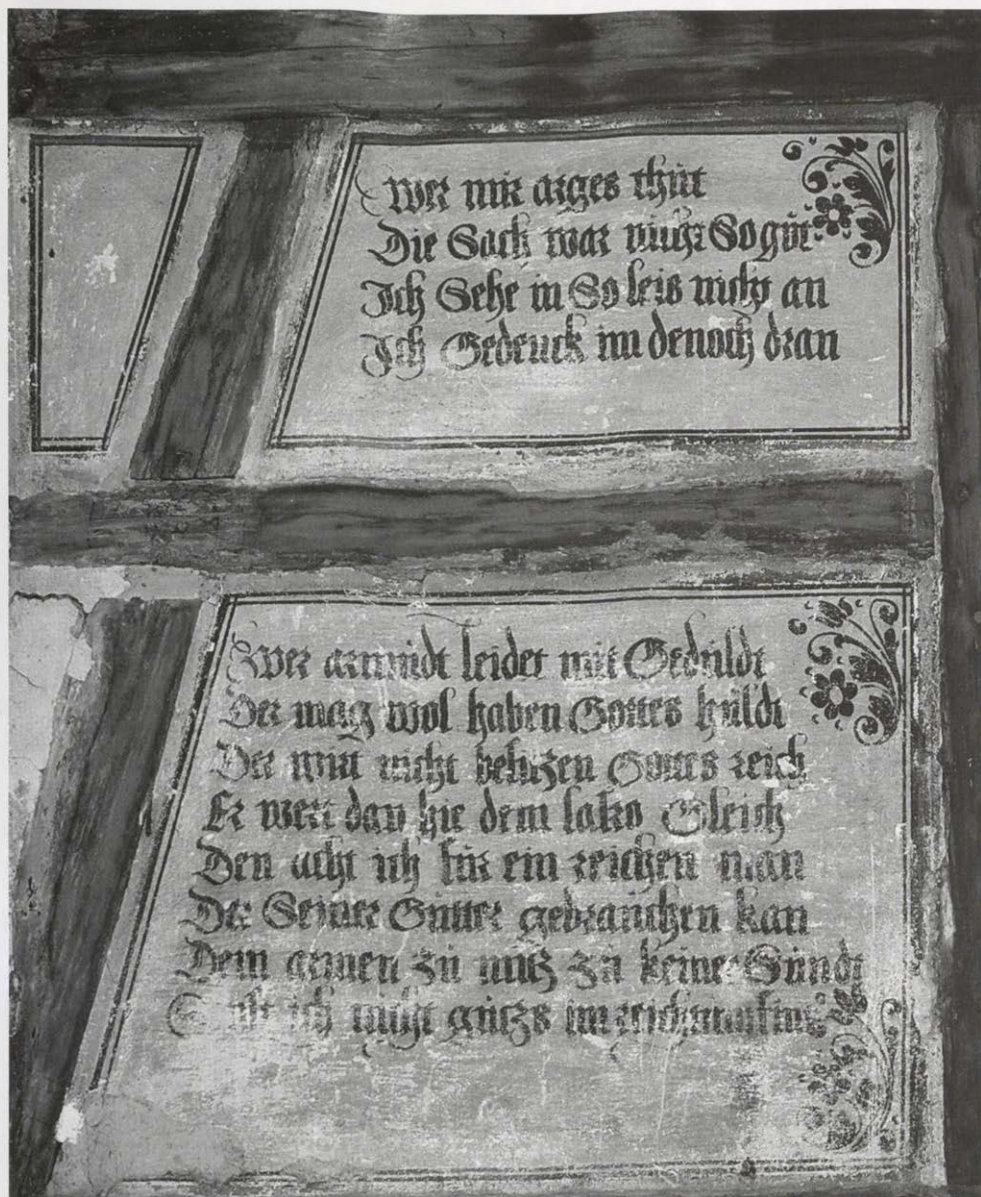 Wer mir arges thut
Die Sach war nicht So gut
Ich Sehe in So leis nicht an
Ich Gedenck im denoch dran
Wer armudt leidet mit Geduldt
Der mag wol haben Gottes huldt
Der wirt nicht besitzen Gottes reich
Er wert dan hie dem Gleich
Den acht ich für ein reichen man
Der Seiner Gutter gebrauchen kan
Dem armen zu nutz zu keiner Sundt
ich nicht gutzs im